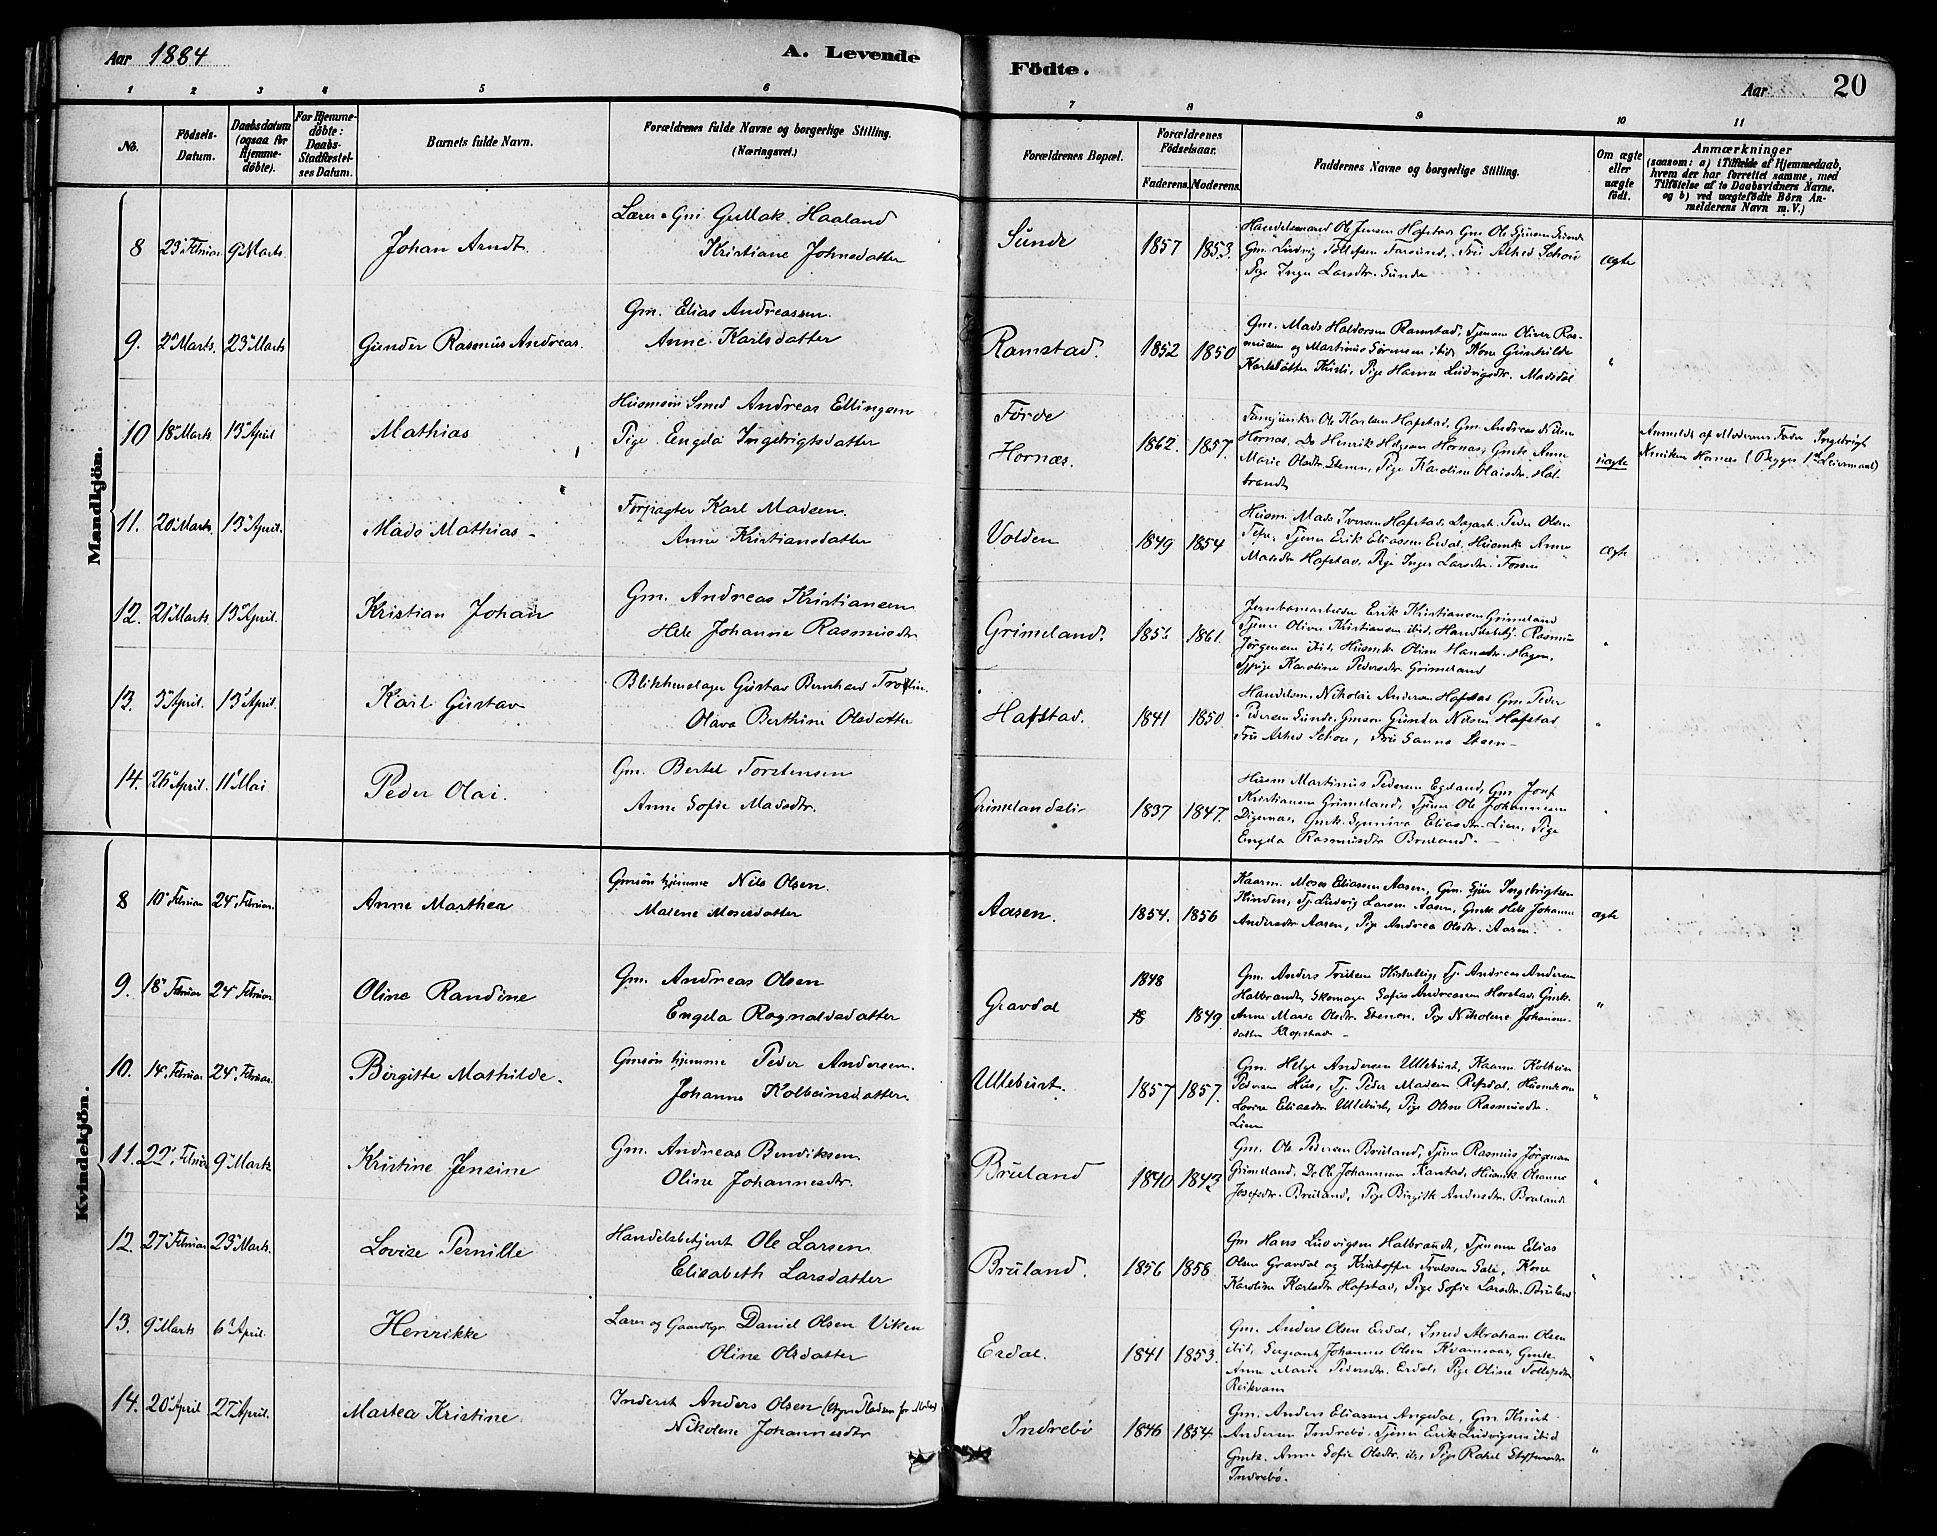 Aar 1884
A. Levende Födte.
Aar 20
1 2 3 4 5 6 7 8 9 10 11
No.
Födsels-Datum.
Daabsdatum (ogsaa for Hjemme-döbte).
For Hjemme-döbte: Daabs-Stadfæstel-ses Datum.
Barnets fulde Navn.
Forældrenes fulde Navne og borgerlige Stilling. (Næringsvei.)
Forældrenes Bopæl.
Forældrenes Födselsaar.
Faderens. Moderens.
Faddernes Navne og borgerlige Stilling.
Om ægte eller uægte födt.
Anmærkninger
(saasom: a) i Tilfælde af Hjemmedaab,
hvem der har forrettet samme, med
Tilföielse af to Daabsvidners Navne.
og b) ved uægtefödte Börn An-
melderens Navn m. V.)
Mandkjön.
8 23 Februar 9 Marts Johan Arndt. Lærer o Gm Gullak Haaland
Kristiane Johnsdatter
Sunde 1857 1853.
Handelsmand Ole Jensen Hafstad, Gm Ole Sjursen Sunde
Gm. Ludvig Tollefsen Farsund, Fru Alhed Schou
Pige Inger Larsdtr. Sunde
ægte
9. 2 Marts. 23 Marts Gunder Rasmus Andreas. Gm. Elias Andreassen.
Anne Karlsdatter
Ramstad. 1852 1850
Gm. Mads Haldorsen Ramstad, Tjenere Oliver Ras-
mussen og Martinus Sørensen ibid, Kone Gunhilde
Karlsdatter, Pige Hanne Ludvigsdtr. Madsdal
"
10 18 Marts 13 April Mathias Husmsøn Smed Andreas Ellingsen
Pige Engda Ingebrigtsdatter
Førde
Hornæs. 1862. 1857.
Ole Karlsen Hafstad, Gm. Andreas Nilsen
Hornæs, Do Henrik Helgesen Hornæs, Gmk Anne
Marie Olsdtr. Steinen, Pige Karoline Olaisdtr. Hal-
brendt
uægte
Anmeldt af Moderens Fader Ingebrigt
Hornæs (Begges 1ste Leiermaal)
11. 20 Marts. 13 April. Mads Mathias - Forpagter Karl Madsen.
Anne Kristiansdatter
Volden 1849 1854
Husm. Mads Iversen Hafstad, Dagarb. Peder Olsen
Tefre, Tjener Erik Eliassen Erdal, Husmk Anne
Madsdtr Hafstad, Pige Inger Larsdtr. Fosse
Ægte
12. 21 Marts. 13 April. Kristian Johan Gm. Andreas Kristiansen
Hele Johanne Rasmusdtr
Grimeland. 1861.
Jernbanearbeider Erik Kristiansen Grimeland
Tjener Oliver Kristiansen ibid, Handelsbetj. Rasmus
Jørgensen ibid, Husmk Oline Hansdtr. Hagen,
Tjpige Karoline Pedersdtr. Grimeland
"
13. 3 April. 13 April. Karl Gustav Blikkenslager Gustav Bernhard
Olava Berthine Olsdatter
Hafstad. 1841 1850
Handelsm. Nikolai Andersen Hafstad, Gm. Peder
Pedersen Sunde, Gmsøn Gunder Nilsen Hafstad
Fru Alhed Schou, Fru Sanna Steen -
"
14. 26 April. 11 Mai Peder Olai. Gm. Bertel Torstensen
Anne Sofie Madsdtr.
Grimelandsli 1837 1847.
Husm Martinus Pedersen Egeland, Gm Josef
Kristiansen Grimeland, Tjener Ole Johannesen
Digernæs, Gmk. Synneva Eliasdtr. Lien, Pige
Engda Rasmusdtr Bruland. -
Kvindekjön.
8 10 Februar 24. Februar. Anne Marthea Gmsøn hjemme Nils Olsen.
Malene Mosesdatter
Aasen. 1854. 1856
Kaarm. Moses Eliassen Aasen, Gm. Sjur Ingebrigtsen
Hinden, Tj. Ludvig Larsen Aasen, Gmk. Hele Johanne
Andersdtr Aasen, Pige Andrea Olsdtr. Aasen.
ægte
9. 18 Februar 24 Februar Oline Randine Gm. Andreas Olsen
Engela Ragnaldsdatter
Gravdal 1848
18 1849
Gm. Anders Truelsen, Tj. Andreas Andersen
Halbrendt, Skomager Sofus Andreassen Horstad, Gmk.
Anne Marie Olsdtr. Steinen, Pige Nikoline Johannes-
datter Hafstad -
"
10. 14. Februar 24. Februar. Birgitte Mathilde. Gmsøn hjemme Peder Andersen.
Johanne Kolbeinsdatter.
Ullebust. 1857 1857.
Gm. Helge Andersen Ullebust, Kaarm Kolbein
Pedersen Hus, Tj. Peder Madsen Refsdal, Husmkone
Lovise Eliasdtr Ullebust, Pige Oline Rasmusdtr.
Lien
"
11. 22. Februar 9 Marts Kristine Jensine Gm. Andreas Bendiksen.
Oline Johannesdtr.
Bruland 1840 1843
Gm. Ole Pedersen Bruland, Tjener Rasmus Jørgensen
Grimeland, Do Ole Johannesen Karstad, Husmk. Oleanne
Josefsdtr. Bruland, Pige Birgitte Andersdtr. Bruland
"
12. 27 Februar 23 Marts. Lovise Pernille Handelsbetjent Ole Larsen
Elisabeth Larsdatter
Bruland. 1856 1858
Gm Hans Ludvigsen Halbrendt, Tjenere Elias
Olsen Gravdal og Kristoffer Truelssen Sale, Kone
Karoline Karlsdtr Hafstad, Pige Sofie Larsdtr. Bruland
"
13. 9 Marts 6 April. Henrikke Lærer og Gaardbgr Daniel Olsen Viken
Oline Olsdatter
Erdal. 1841 1853.
Gm. Anders Olsen Erdal, Smed Abraham Olsen
ibid, Sergeant Johannes Olsen Kvamsaas, Gmk.
Anne Marie Pedersdtr. Erdal, Pige Oline Tollefsdtr
Reikvam
"
14. 20 April 27 April. Martea Kristine. Inderst Anders Olsen
Nikolene Johannesdtr
Indrebö 1846 1854
Gm. Anders Eliassen Angedal, Gm Knut
Andersen Indrebø, Tjener Erik Ludvigsen ibid
Gmk. Anne Sofie Olsdtr. ibid, Pige Rakel Steffensdtr
Indrebø.
"